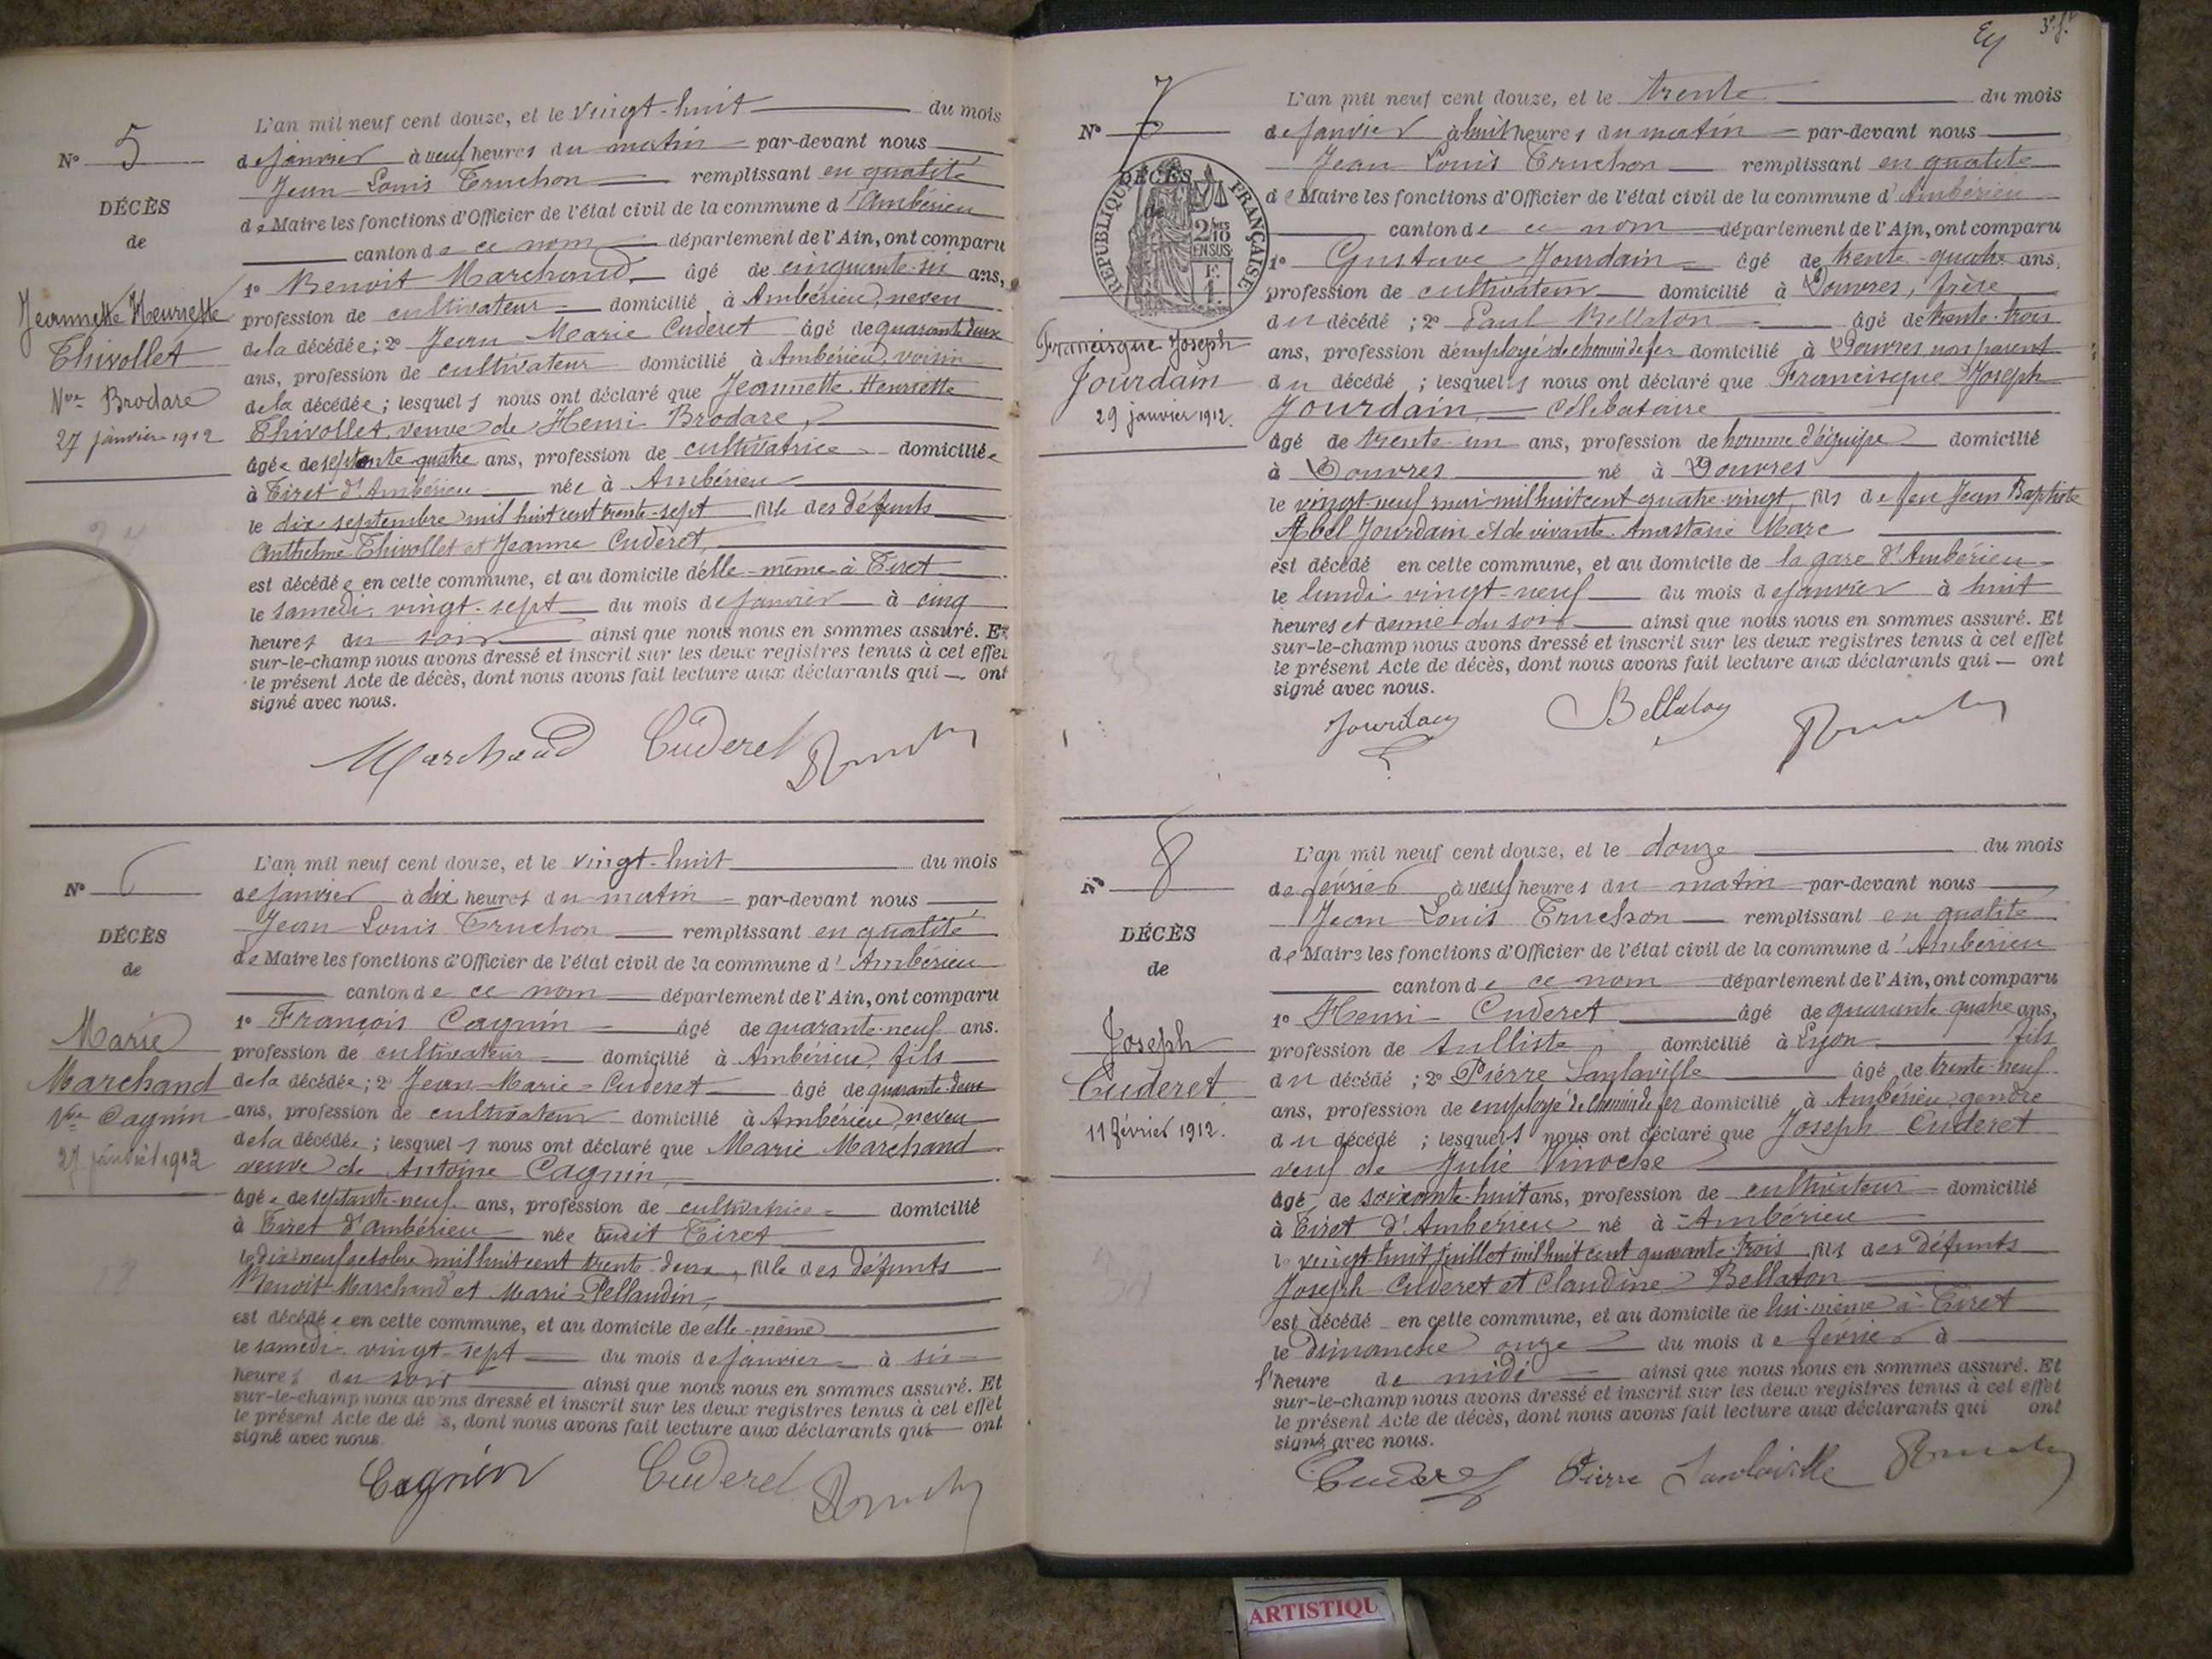 N° 5
DÉCÈS
de
Jeannette Henriette
Thivollet
Vve Brodare
27 janvier 1912
L'an mil neuf cent douze, et le vingt-huit du mois
de janvier à neuf heures du matin par-devant nous
Jean Louis Truchon remplissant en qualité
de Maire les fonctions d'Officier de l'état civil de la commune d'Ambérieu
canton de ce nom département de l'Ain, ont comparu
1° Benoit Marchand âgé de cinquante-six ans,
profession de cultivateur domicilié à Ambérieu, neveu
de la décédée; 2° Jean Marie Cuderet âgé de quarante deux
ans, profession de cultivateur domicilié à Ambérieu, voisin
de la décédée; lesquels nous ont déclaré que Jeannette Henriette
Thivollet, veuve de Henri Brodare,
âgée de septante quatre ans, profession de cultivatrice domiciliée
à Tiret d'Ambérieu née à Ambérieu
le dix septembre mil huit cent trente-sept fille des défunts
Anthelme Thivollet et Jeanne Cuderet,
est décédée en cette commune, et au domicile d'elle-même à Tiret
le samedi vingt-sept du mois de janvier à cinq
heures du soir ainsi que nous nous en sommes assuré. Et
sur-le-champ nous avons dressé et inscrit sur les deux registres tenus à cet effet
le présent Acte de décès, dont nous avons fait lecture aux déclarants qui — ont
signé avec nous.
Marchand Cuderet
N° 6
DÉCÈS
de
Marie
Marchand
Vve Cagnin
27 janvier 1912
L'an mil neuf cent douze, et le vingt-huit du mois
de janvier à dix heures du matin par-devant nous
Jean Louis Truchon remplissant en qualité
de Maire les fonctions d'Officier de l'état civil de la commune d'Ambérieu
canton de ce nom département de l'Ain, ont comparu
1° François Cagnin âgé de quarante-neuf ans.
profession de cultivateur domicilié à Ambérieu, fils
de la décédée; 2° Jean-Marie Cuderet âgé de quarante-deux
ans, profession de cultivateur domicilié à Ambérieu, neveu
de la décédée; lesquels nous ont déclaré que Marie Marchand
veuve de Antoine Cagnin,
âgée de septante-neuf ans, profession de cultivatrice domicilié
à Tiret d'Ambérieu née audit Tiret
le dix-neuf octobre mil huit cent trente-deux, fille des défunts
Benoit Marchand et Marie Pellaudin,
est décédée en cette commune, et au domicile de elle-même
le samedi vingt-sept du mois de janvier à six
heures du soir ainsi que nous nous en sommes assuré. Et
sur-le-champ nous avons dressé et inscrit sur les deux registres tenus à cet effet
le présent Acte de dé s, dont nous avons fait lecture aux déclarants qui — ont
signé avec nous
Cagnin Cuderet
3e f.
N° 7
DÉCÈS
de
RÉPUBLIQUE FRANÇAISE
2/10 EN SUS
Francisque Joseph
Jourdain
29 janvier 1912.
L'an mil neuf cent douze, et le trente du mois
de janvier à huit heures du matin par-devant nous
Jean Louis Truchon remplissant en qualité
de Maire les fonctions d'Officier de l'état civil de la commune d'Ambérieu
canton de ce nom département de l'Ain, ont comparu
1° Gustave Jourdain âgé de trente-quatre ans,
profession de cultivateur domicilié à Douvres, frère
du décédé; 2° Paul Bellaton âgé de trente-trois
ans, profession d'employé de chemin de fer domicilié à Douvres non parent
du décédé; lesquels nous ont déclaré que Francisque Joseph
Jourdain, célibataire
âgé de trente-un ans, profession de homme d'équipe domicilié
à Douvres né à Douvres
le vingt-neuf mai mil huit cent quatre-vingt fils de feu Jean Baptiste
Abel Jourdain et de vivante Anastasie Marc
est décédé en cette commune, et au domicile de la gare d'Ambérieu
le lundi vingt-neuf du mois de janvier à huit
heures et demie du soir ainsi que nous nous en sommes assuré. Et
sur-le-champ nous avons dressé et inscrit sur les deux registres tenus à cet effet
le présent Acte de décès, dont nous avons fait lecture aux déclarants qui — ont
signé avec nous.
Jourdain Bellaton
N° 8
DÉCÈS
de
Joseph
Cuderet
11 février 1912.
L'an mil neuf cent douze, et le douze du mois
de février à neuf heures du matin par-devant nous
Jean Louis Truchon remplissant en qualité
de Maire les fonctions d'Officier de l'état civil de la commune d'Ambérieu
canton de ce nom département de l'Ain, ont comparu
1° Henri Cuderet âgé de quarante quatre ans,
profession de tulliste domicilié à Lyon fils
du décédé; 2° Pierre Sanlaville âgé de trente-neuf
ans, profession de employé de chemin de fer domicilié à Ambérieu, gendre
du décédé; lesquels nous ont déclaré que Joseph Cuderet
veuf de Julie Vinoche
âgé de soixante-huit ans, profession de cultivateur domicilié
à Tiret d'Ambérieu né à Ambérieu
le vingt-huit juillet mil huit cent quarante-trois fils des défunts
Joseph Cuderet et Claudine Bellaton
est décédé en cette commune, et au domicile de lui-même à Tiret
le Dimanche onze du mois de février à
l'heure de midi ainsi que nous nous en sommes assuré. Et
sur-le-champ nous avons dressé et inscrit sur les deux registres tenus à cet effet
le présent Acte de décès, dont nous avons fait lecture aux déclarants qui ont
signé avec nous.
Cuderet Pierre Sanlaville
ARTISTIQU